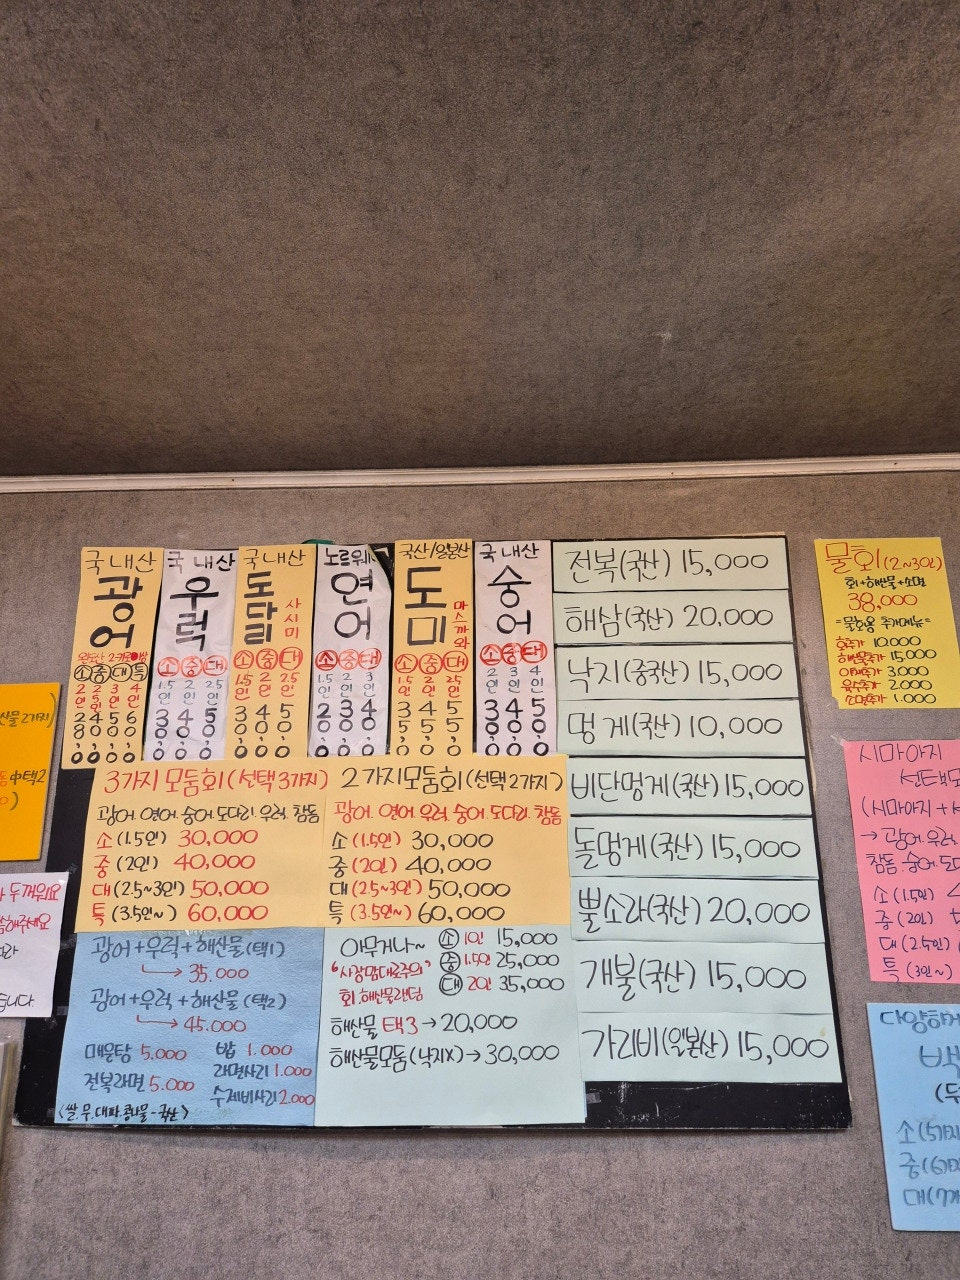 국내산
광어
완도산 2키로
소 중 대 특
2인 2.5인 3인 4인
28,0 40,0 50,0 60,0
국내산
우럭
소 중 대
1.5인 2인 2.5인
30,0 40,0 50,0
국내산
도다리
사시미
소 중 대
1.5인 2인 2.5인
30,0 40,0 50,0
노르웨
연어
소 중 대
1.5인 2인 3인
20,0 30,0 40,0
국산/일본산
도미
마스까와
소 중 대
1.5인 2인 2.5인
35,0 45,0 55,0
국내산
숭어
소 중 대
2인 3인 4인
30,0 40,0 50,0
전복(국산) 15,000
해삼(국산) 20,000
낙지(중국산) 15,000
멍게(국산) 10,000
비단멍게(국산) 15,000
돌멍게(국산) 15,000
뿔소라(국산) 20,000
개불(국산) 15,000
가리비(일본산) 15,000
3가지 모둠회(선택 3가지)
광어. 연어. 숭어. 도다리. 우럭. 참돔
소 (1.5인) 30,000
중 (2인) 40,000
대 (2.5~3인) 50,000
특 (3.5인~) 60,000
2가지모둠회(선택2가지)
광어. 연어. 우럭. 숭어. 도다리. 참돔
소 (1.5인) 30,000
중 (2인) 40,000
대 (2.5~3인) 50,000
특 (3.5인~) 60,000
광어+우럭+해산물(택1)
→ 35.000
광어+우럭+해산물(택2)
→ 45.000
매운탕 5.000
밥 1.000
전복라면 5.000
라면사리 1.000
수제비사리 2.000
<쌀.무.대파.콩나물-국산>
아무거나~
"사장맘대로주의"
회.해산물랜덤
소 1인 15,000
중 1.5인 25,000
대 2인 35,000
해산물 택3 → 20,000
해산물모둠(낙지X) → 30,000
물회(2~3인)
회+해산물+소면
38,000
=물회용 추가메뉴=
회추가 10.000
해산물추가 15,000
야채추가 3.000
육수추가 2.000
소면추가 1.000
시마아지
선택모
(시마아지+
→ 광어.우러
참돔.숭어.도다
소 (1.5인)
중 (2인)
대 (2.5인)
특 (3인~)
다양하게
소(5가지
중(6가지
대(7가
산물 2가지
中택2
두꺼워요
해주세요
습니다